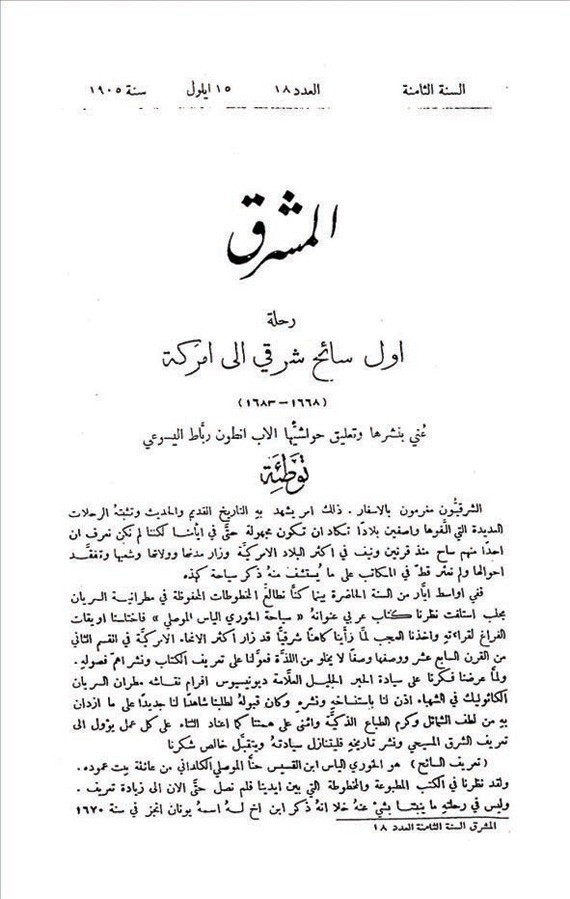 السنة الثامنة العدد ١٨ ١٥ ايلول سنة ١٩٠٥
المشرق
رحلة
اول سائح شرقي الى امركة
(١٦٦٨-١٦٨٣)
عُني بنشرها وتعليق حواشيها الاب انطون ربّاط اليسوعي
توطئة
الشرقيُّون مغرمون بالاسفار. ذلك امر يشهد به التاريخ القديم والحديث وتثبتهُ الرحلات
العديدة التي الَّفوها واصفين بلادًا تكاد ان تكون مجهولة حتَّى في ايَّامنا لكننا لم نكن نعرف ان
احدًا منهم ساح منذ قرنين ونيف في اكثر البلاد الامركيَّة وزار مدنها وولاتها وشعبها وتفقَّد
احوالها ولم نعثر قطّ في المكاتب على ما يُستشفّ منهُ ذكر سياحة كهذه
ففي اواسط ايَّار من السنة الحاضرة بينما كنَّا نطالع المخطوطات المحفوظة في مطرانية السريان
بحلب استلفت نظرنا كتاب عربي عنوانهُ «سياحة الخوري الياس الموصلي» فاختلسنا اويقات
الفراغ لقراءتهِ واخذنا العجب لمَّا رأينا كاهنًا شرقيًّا قد زار اكثر الانحاء الامركيَّة في القسم الثاني
من القرن السابع عشر ووصفها وصفًا لا يخلو من اللذَّة فعوَّلنا على تعريف الكتاب ونشر اهمّ فصولهِ.
ولمَّا عرضنا فكرنا على سيادة الحبر الجليل العلَّامة ديونيسيوس افرام نقاشه مطران السريان
الكاثوليك في الشهباء اذن لنا باستنساخهِ ونشرهِ وكان قبولهُ لطلبنا شاهدًا لنا جديدًا على ما ازدان
بهِ من لطف الشمائل وكرم الطباع الذكيَّة واثنى على همتنا كما اعتاد الثناء على كل عمل يؤول الى
تعريف الشرق المسيحي ونشر تاريخهِ فليتنازل سيادتهُ ويتقبَّل خالص شكرنا
(تعريف السائح) هو الخوري الياس ابن القسيس حنَّا الموصلي الكلداني من عائلة بيت عموده.
ولقد نظرنا في الكتب المطبوعة والمخطوطة التي بين ايدينا فلم نصل حتَّى الان الى زيادة تعريف.
وليس في رحلتهِ ما ينبئنا بشيْ عنهُ خلا انهُ ذكر ابن اخ لهُ اسمهُ يونان انجز في سنة ١٦٧٠
المشرق السنة الثامنة العدد ١٨